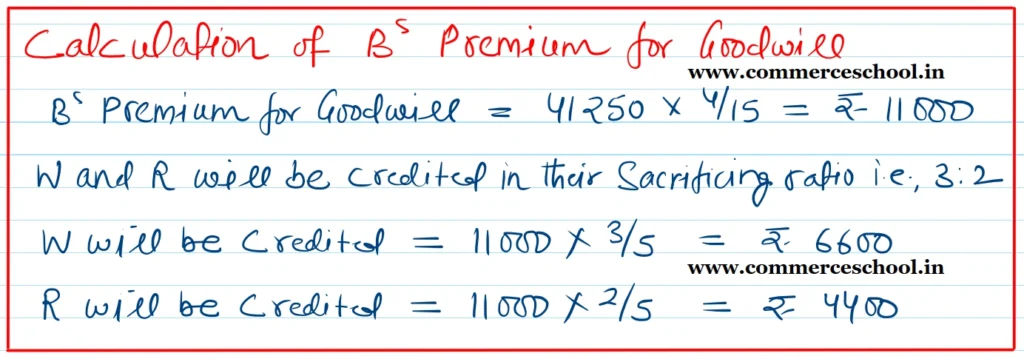 Calculation of Bˢ Premium for Goodwill
www.commerceschool.in
Bˢ Premium for Goodwill = 41250 × 4/15 = ₹ 11000
W and R will be credited in their Sacrificing ratio i.e., 3:2
W will be Credited = 11000 × 3/5 = ₹ 6600
www.commerceschool.in
R will be Credited = 11000 × 2/5 = ₹ 4400